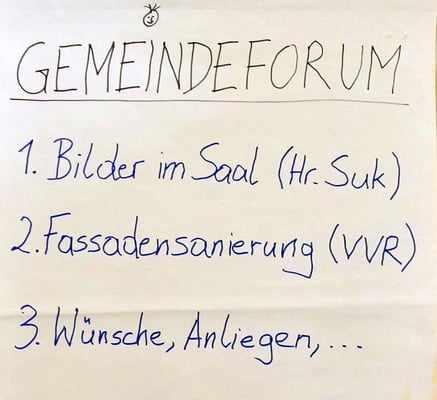 GEMEINDEFORUM
1. Bilder im Saal (Hr. Suk)
2. Fassadensanierung (VVR)
3. Wünsche, Anliegen, ...